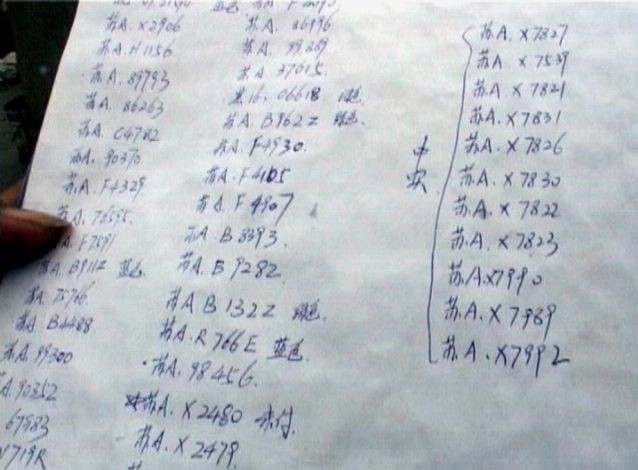 苏A.X2906
苏A.H1156
苏A.89793
苏A.86263
苏A.C4782
苏A.90370
苏A.F4329
苏A.76595
A.F7591
苏A.B911Z 蓝色
苏A.75766
苏A.B4488
苏A.99300
A.90352
67983
V719R
苏A.86996
苏A.99889
苏A.37015
黑16.06618
苏A.B862Z
苏A.F4930.
苏A.F4105
苏A.F4907
苏A.B8393.
苏A.B9282
苏A.B132Z
苏A.R766E 蓝色.
苏A.98456.
苏A.X2480 未付.
苏A.X2479.
中
央
苏A.X7827
苏A.X7539
苏A.X7821
苏A.X7831
苏A.X7826
苏A.X7830
苏A.X7822
苏A.X7823
苏A.X7990
苏A.X7989
苏A.X7992